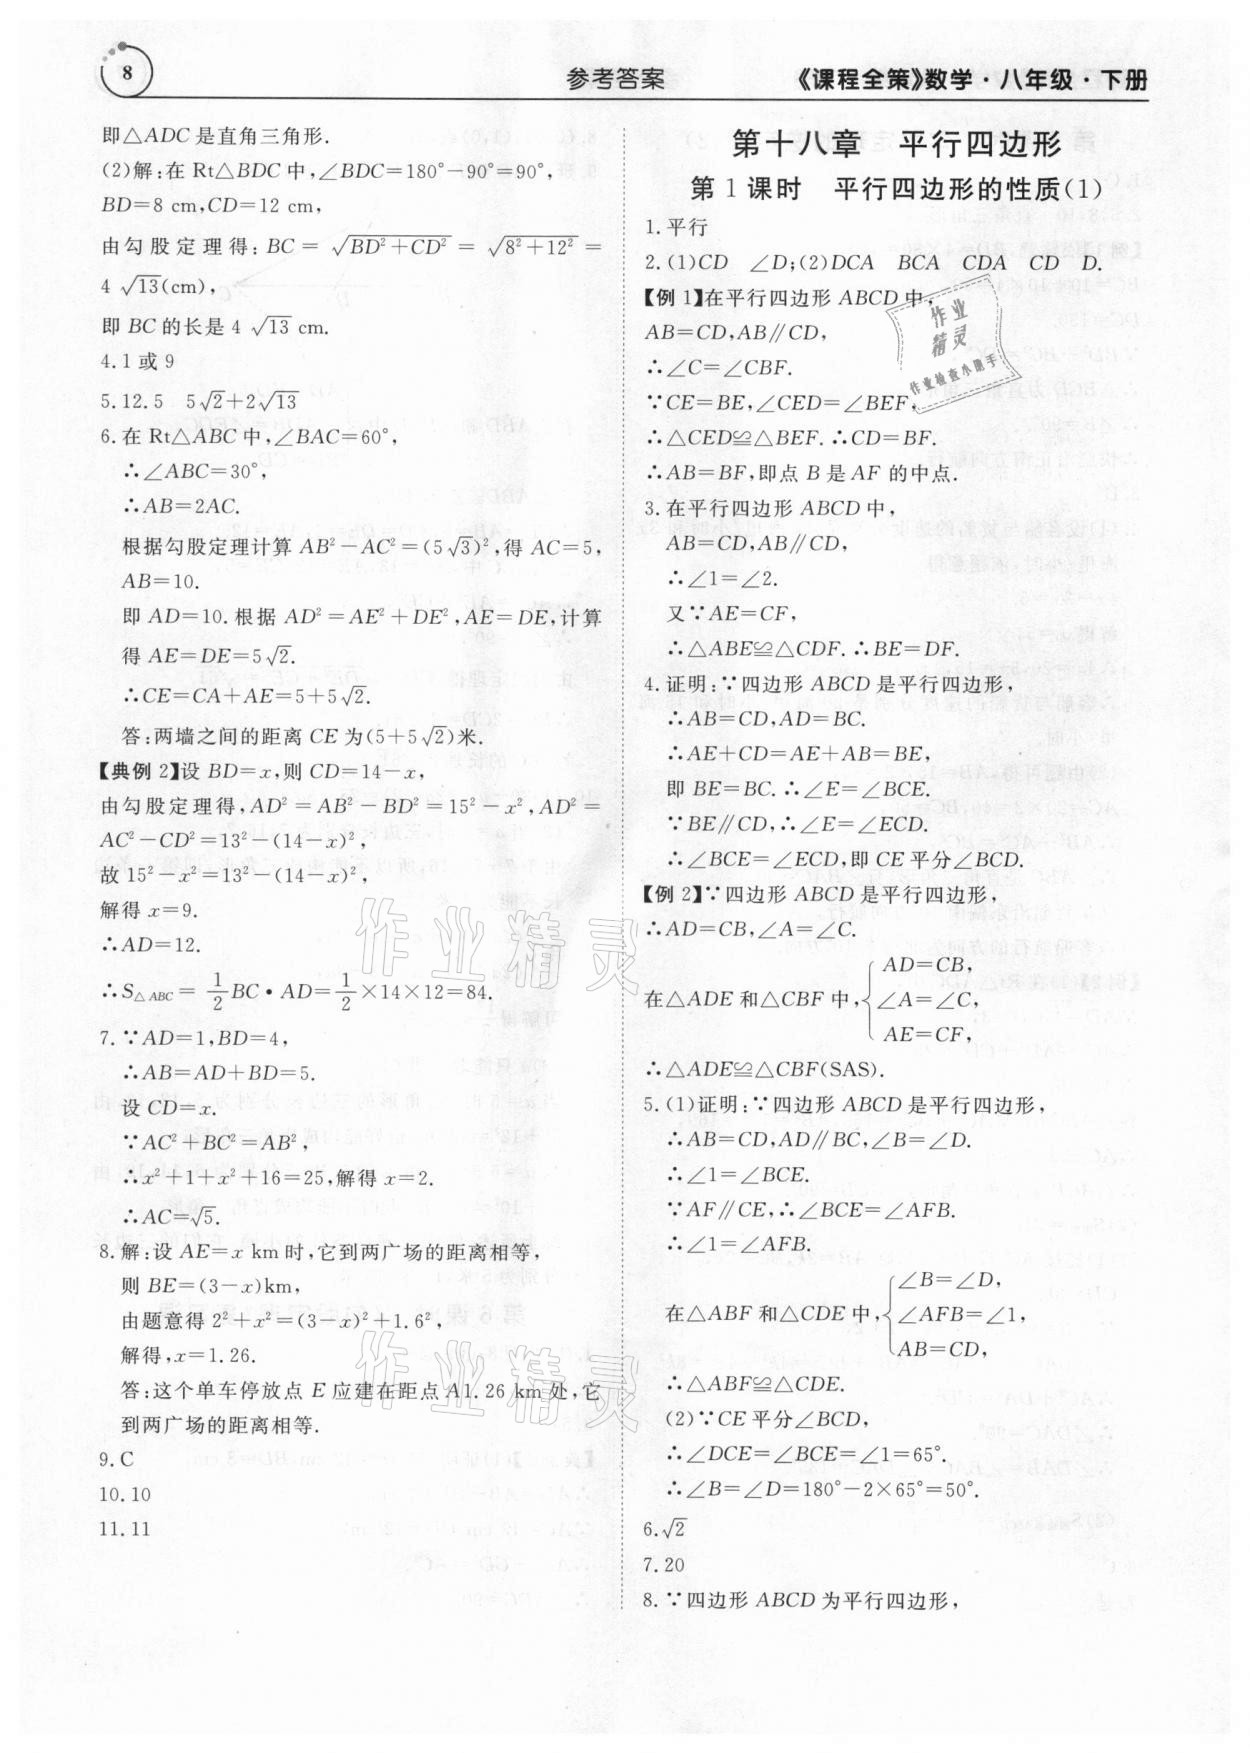 8
参考答案
《课程全策》数学·八年级·下册
即△ADC是直角三角形.
(2)解:在Rt△BDC中,∠BDC=180°-90°=90°,
BD=8 cm,CD=12 cm,
由勾股定理得:BC=√(BD²+CD²)=√(8²+12²)=
4√13(cm),
即BC的长是4√13 cm.
4.1或9
5.12.5  5√2+2√13
6.在Rt△ABC中,∠BAC=60°,
∴∠ABC=30°,
∴AB=2AC.
根据勾股定理计算AB²-AC²=(5√3)²,得AC=5,
AB=10.
即AD=10.根据AD²=AE²+DE²,AE=DE,计算
得AE=DE=5√2.
∴CE=CA+AE=5+5√2.
答:两墙之间的距离CE为(5+5√2)米.
【典例2】设BD=x,则CD=14-x,
由勾股定理得,AD²=AB²-BD²=15²-x²,AD²=
AC²-CD²=13²-(14-x)²,
故15²-x²=13²-(14-x)²,
解得x=9.
∴AD=12.
∴S△ABC=1/2 BC·AD=1/2×14×12=84.
7.∵AD=1,BD=4,
∴AB=AD+BD=5.
设CD=x.
∵AC²+BC²=AB²,
∴x²+1+x²+16=25,解得x=2.
∴AC=√5.
8.解:设AE=x km时,它到两广场的距离相等,
则BE=(3-x)km,
由题意得2²+x²=(3-x)²+1.6²,
解得,x=1.26.
答:这个单车停放点E应建在距点A1.26 km处,它
到两广场的距离相等.
9.C
10.10
11.11
第十八章 平行四边形
第1课时 平行四边形的性质(1)
1.平行
2.(1)CD ∠D;(2)DCA BCA CDA CD D.
【例1】在平行四边形ABCD中,
AB=CD,AB∥CD,
∴∠C=∠CBF.
∵CE=BE,∠CED=∠BEF,
∴△CED≌△BEF.∴CD=BF.
∴AB=BF,即点B是AF的中点.
3.在平行四边形ABCD中,
AB=CD,AB∥CD,
∴∠1=∠2.
又∵AE=CF,
∴△ABE≌△CDF.∴BE=DF.
4.证明:∵四边形ABCD是平行四边形,
∴AB=CD,AD=BC.
∴AE+CD=AE+AB=BE,
即BE=BC.∴∠E=∠BCE.
∵BE∥CD,∴∠E=∠ECD.
∴∠BCE=∠ECD,即CE平分∠BCD.
【例2】∵四边形ABCD是平行四边形,
∴AD=CB,∠A=∠C.
AD=CB,
在△ADE和△CBF中,{∠A=∠C,
AE=CF,
∴△ADE≌△CBF(SAS).
5.(1)证明:∵四边形ABCD是平行四边形,
∴AB=CD,AD∥BC,∠B=∠D.
∴∠1=∠BCE.
∵AF∥CE,∴∠BCE=∠AFB.
∴∠1=∠AFB.
∠B=∠D,
在△ABF和△CDE中,{∠AFB=∠1,
AB=CD,
∴△ABF≌△CDE.
(2)∵CE平分∠BCD,
∴∠DCE=∠BCE=∠1=65°.
∴∠B=∠D=180°-2×65°=50°.
6.√2
7.20
8.∵四边形ABCD为平行四边形,
作业
精灵
作业检查小助手
作业精灵
作业精灵